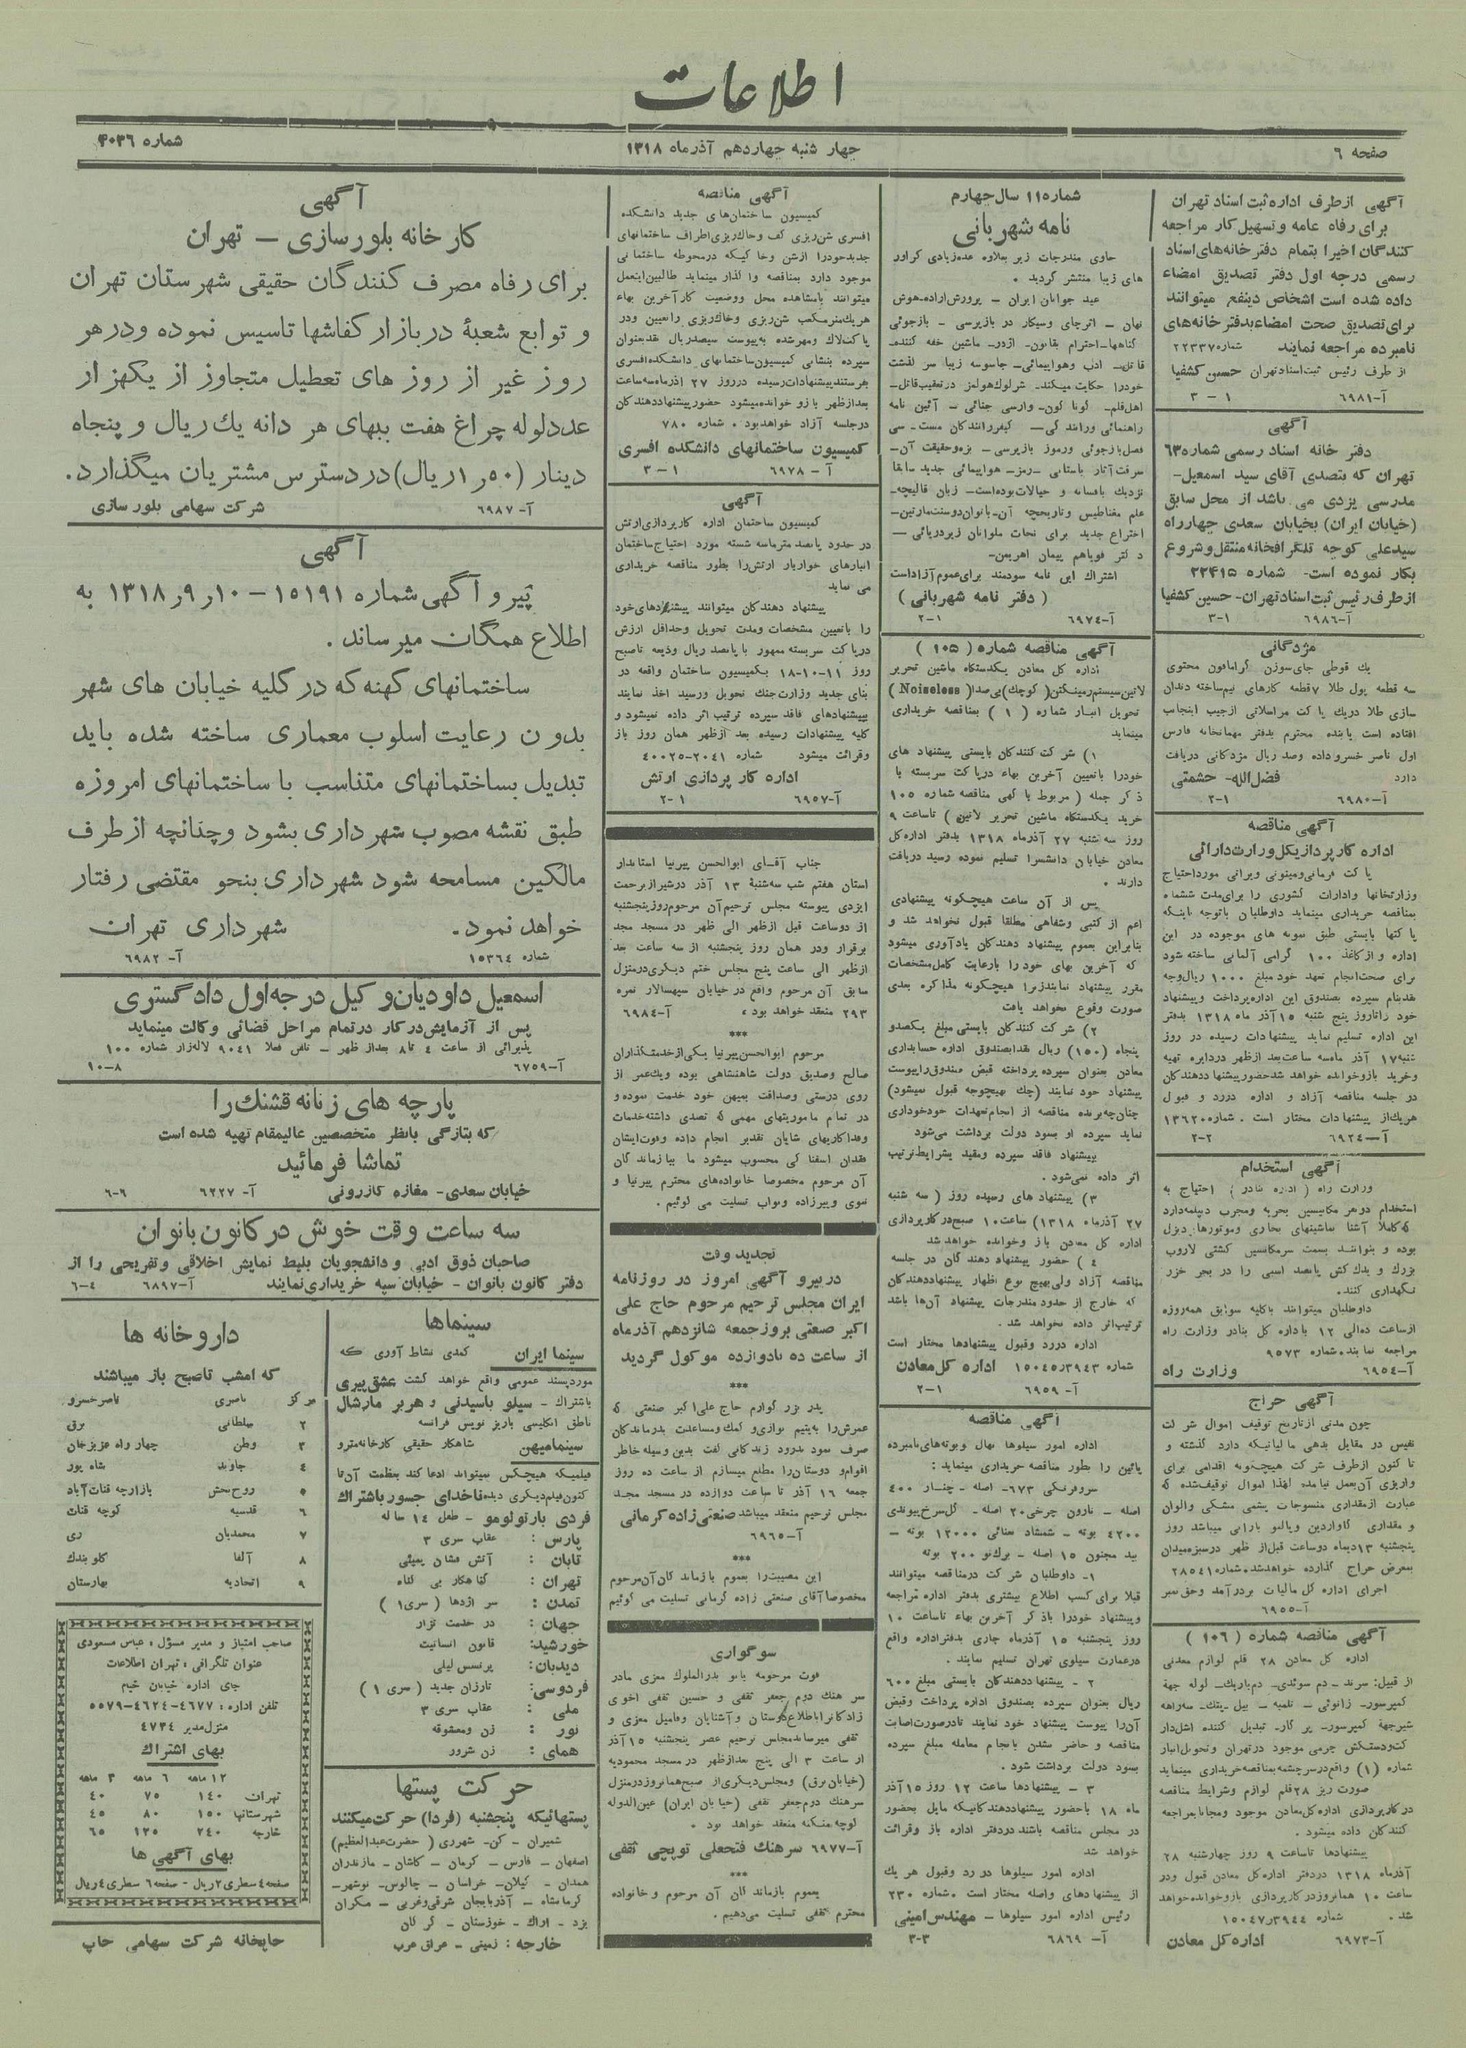 اطلاعات
صفحه ۶
چهار شنبه چهاردهم آذرماه ۱۳۱۸
شماره ۴۰۳۶
آگهی ازطرف اداره ثبت اسناد تهران
برای رفاه عامه و تسهیل کار مراجعه
کنندگان اخیرا بتمام دفترخانه‌های اسناد
رسمی درجه اول دفتر تصدیق امضاء
داده شده است اشخاص ذینفع میتوانند
برای تصدیق صحت امضاء بدفترخانه‌های
نامبرده مراجعه نمایند شماره ۲۲۳۳۷
از طرف رئیس ثبت اسناد تهران حسین کشفیا
آ-۶۹۸۱ ۱ - ۳
آگهی
دفتر خانه اسناد رسمی شماره ۶۳
تهران که بتصدی آقای سید اسمعیل-
مدرسی یزدی می باشد از محل سابق
(خیابان ایران) بخیابان سعدی چهارراه
سیدعلی کوچه تلگرافخانه منتقل و شروع
بکار نموده است- شماره ۲۲۴۱۵
ازطرف رئیس ثبت اسناد تهران- حسین کشفیا
آ-۶۹۸۶ ۱-۳
مژدگانی
یك قوطی جای سوزن گرامافون محتوی
سه قطعه پول طلا ۷ قطعه کارهای نیم ساخته دندان
سازی طلا دریك پاکت مراسلاتی ازجیب اینجانب
افتاده است یابنده محترم بدفتر مهمانخانه فارس
اول ناصر خسرو داده وصد ریال مژدگانی دریافت
دارد فضل‌الله- حشمتی
آ-۶۹۸۰ ۱-۲
آگهی مناقصه
اداره کارپردازی کل وزارت دارائی
وزارتخانها وادارات کشوری را برای مدت ششماه
بمناقصه خریداری مینماید داوطلبان باتوجه باینکه
پاکتها بایستی طبق نمونه های موجوده در این
اداره و از کاغذ ۱۰۰ گرمی آلمانی ساخته شود
برای صحت انجام تعهد خود مبلغ ۱۰۰۰ ریال وجه
نقد بنام سپرده بصندوق این اداره پرداخت و پیشنهاد
خود را تا روز پنج شنبه ۱۵ آذر ماه ۱۳۱۸ بدفتر
این اداره تسلیم نماید پیشنهادات رسیده در روز
شنبه ۱۷ آذر ماه سه ساعت بعد ازظهر دردایره تهیه
وخرید باز و خوانده خواهد شد حضور پیشنهاد دهندگان
در جلسه مناقصه آزاد و اداره دررد و قبول
هریك از پیشنهادات مختار است . شماره ۱۳۶۲۰
آ-۶۹۲۴ ۲-۲
آگهی استخدام
استخدام دونفر مکانیسین بحریه ومجرب دیپلمه دارد
که کاملا آشنا بماشینهای بخاری وموتورها دیزل
بوده و بتوانند بسمت سرمکانیسین کشتی لاروب
بزرگ و یدك کش پانصد اسبی را در بحر خزر
نگهداری کنند.
داوطلبان میتوانند باکلیه سوابق همه روزه
ازساعت ده الی ۱۲ باداره کل بنادر وزارت راه
مراجعه نمایند. شماره ۹۵۷۳
آ-۶۹۵۴ وزارت راه
آگهی حراج
چون مدتی ازتاریخ توقیف اموال شرکت
نفیس در مقابل بدهی مالیاتیکه دارد گذشته و
تا کنون ازطرف شرکت هیچگونه اقدامی برای
واریزی آن بعمل نیامده لهذا اموال توقیف شده که
عبارت ازمقداری منسوجات پشمی مشکی والوان
و مقداری گاواردین وپالتو بارانی میباشد روز
پنجشنبه ۱۳ دیماه دوساعت قبل از ظهر درسبزه میدان
بمعرض حراج گذارده خواهد شد. شماره ۲۸۵۴۱
اجرای اداره کل مالیات بردرآمد وحق تمبر
آ-۶۹۵۵
آگهی مناقصه شماره ( ۱۰۶ )
اداره کل معادن ۲۸ قلم لوازم معدنی
شماره (۱) واقع درسرچشمه بمناقصه خریداری مینماید
صورت ریز ۲۸ قلم لوازم وشرایط مناقصه
درکارپردازی اداره کل معادن موجود ومجانا بمراجعه
کنندگان داده میشود.
پیشنهادها تاساعت ۹ روز چهارشنبه ۲۸
آذرماه ۱۳۱۸ دردفتر اداره کل معادن قبول ودر
ساعت ۱۰ همانروز درکارپردازی باز وخوانده خواهد
شد . شماره ۱۵۰۴۷٫۳۹۴۴
آ-۶۹۷۳ اداره کل معادن
شماره ۱۱ سال چهارم
نامه شهربانی
حاوی مندرجات زیر بعلاوه عده زیادی گراور
های زیبا منتشر گردید .
عید جوانان ایران - پرورش اراده-هوش
نهان - اثر چای وسیگار در بازپرسی - بازجوئی
خودرا حکایت میکند- شرلوك هولمز درتعقیب قاتل-
علم مغناطیس وتاریخچه آن- بانوان دوست مارتین-
اختراع جدید برای نجات ملوانان زیردریائی -
اشتراك این نامه سودمند برای عموم آزاد است
( دفتر نامه شهربانی )
آ-۶۹۷۴ ۱-۲
آگهی مناقصه شماره ( ۱۰۵ )
اداره کل معادن یکدستگاه ماشین تحریر
لاتین سیستم رمینگتن ( کوچك) بی صدا ( Noiseless )
تحویل انبار شماره ( ۱ ) بمناقصه خریداری
مینماید
۱) شرکت کنندگان بایستی پیشنهاد های
خودرا باتعیین آخرین بهاء درپاکت سربسته با
ذکر جمله ( مربوط بآگهی مناقصه شماره ۱۰۵
خرید یکدستگاه ماشین تحریر لاتین) تاساعت ۹
روز سه شنبه ۲۷ آذرماه ۱۳۱۸ بدفتر اداره کل
معادن خیابان دانشسرا تسلیم نموده رسید دریافت
دارند .
پس از آن ساعت هیچگونه پیشنهادی
اعم از کتبی وشفاهی مطلقا قبول نخواهد شد و
بنابراین بعموم پیشنهاد دهندگان یادآوری میشود
که آخرین بهای خود را بارعایت کامل مشخصات
مقرر پیشنهاد نمایند زیرا هیچگونه مذاکره بعدی
صورت وقوع نخواهد یافت
۲) شرکت کنندگان بایستی مبلغ یکصدو
پنجاه (۱۵۰) ریال نقدا بصندوق اداره حسابداری
معادن بعنوان سپرده پرداخته قبض صندوق را پیوست
پیشنهاد خود نمایند (چك بهیچوجه قبول نمیشود)
چنانچه برنده مناقصه از انجام تعهدات خودخودداری
نماید سپرده او بسود دولت برداشت می‌شود
پیشنهاد فاقد سپرده ومقید بشرایط ترتیب
اثر داده نمی‌شود.
۳) پیشنهاد های رسیده روز ( سه شنبه
۲۷ آذرماه ۱۳۱۸) ساعت ۱۰ صبح درکارپردازی
اداره کل معادن باز وخوانده خواهد شد
۴ ) حضور پیشنهاد دهندگان در جلسه
مناقصه آزاد ولی بهیچ نوع اظهار پیشنهاد دهندگان
که خارج از حدود مندرجات پیشنهاد آن‌ها باشد
ترتیب اثر داده نخواهد شد.
اداره دررد وقبول پیشنهادها مختار است
شماره ۱۵۰۴۵٫۳۹۴۳ اداره کل معادن
آ- ۶۹۵۹ ۱-۲
آگهی مناقصه
اداره امور سیلوها نهال و بوته‌های نامبرده
پائین را بطور مناقصه خریداری مینماید :
سرو فرنگی ۶۷۳- اصله - چنار ۴۰۰
اصله - نارون چرخی ۲۰ اصله - گل سرخ پیوندی
۴۲۰۰ بوته - شمشاد نعنائی ۱۲۰۰۰ بوته -
بید مجنون ۱۵ اصله - برگ نو ۲۰۰ بوته
۱- داوطلبان شرکت درمناقصه میتوانند
قبلا برای کسب اطلاع بیشتری بدفتر اداره مراجعه
وپیشنهاد خودرا باذکر آخرین بهاء تاساعت ۱۰
روز پنجشنبه ۱۵ آذرماه جاری بدفتر اداره واقع
درعمارت سیلوی تهران تسلیم نمایند .
۲ - پیشنهاد دهندگان بایستی مبلغ ۶۰۰
ریال بعنوان سپرده بصندوق اداره پرداخت وقبض
آن‌را پیوست پیشنهاد خود نمایند تادرصورت اصابت
مناقصه و حاضر نشدن بانجام معامله مبلغ سپرده
بسود دولت برداشت شود .
۳ - پیشنهادها ساعت ۱۲ روز ۱۵ آذر
ماه ۱۸ باحضور پیشنهاد دهندگانیکه مایل بحضور
در مجلس مناقصه باشند دردفتر اداره باز وقرائت
خواهد شد
اداره امور سیلوها در رد وقبول هریك
از پیشنهادهای واصله مختار است . شماره ۲۳۰
رئیس اداره امور سیلوها - مهندس امینی
آ- ۶۸۶۹ ۳-۳
آگهی مناقصه
کمیسیون ساختمان‌های جدید دانشکده
افسری شن ریزی کف وخاك ریزی اطراف ساختمانهای
جدید خودرا ازشن وخاکیکه درمحوطه ساختمانی
موجود دارد بمناقصه واگذار مینماید طالبین اینعمل
میتوانند بامشاهده محل ووضعیت کار آخرین بهاء
هریك متر مکعب شن ریزی وخاك ریزی را تعیین ودر
پاکت لاك ومهرشده به پیوست سیصد ریال نقد بعنوان
سپرده بنشانی کمیسیون ساختمانهای دانشکده افسری
بفرستند پیشنهادات رسیده درروز ۲۷ اذرماه سه ساعت
بعد ازظهر باز و خوانده میشود حضور پیشنهاد دهندگان
درجلسه آزاد خواهد بود . شماره ۷۸۰
کمیسیون ساختمانهای دانشکده افسری
آ - ۶۹۷۸ ۱-۳
آگهی
کمیسیون ساختمان اداره کارپردازی ارتش
در حدود پانصد متر ماسه شسته مورد احتیاج ساختمان
انبارهای خواربار ارتش را بطور مناقصه خریداری
می نماید
پیشنهاد دهندگان میتوانند پیشنهادهای خود
را باتعیین مشخصات ومدت تحویل وحداقل ارزش
درپاکت سربسته ممهور با پانصد ریال ودیعه تاصبح
روز ۱۱-۱۰-۱۸ بکمیسیون ساختمان واقعه در
بنای جدید وزارت جنك تحویل ورسید اخذ نمایند
بپیشنهادهای فاقد سپرده ترتیب اثر داده نمیشود و
کلیه پیشنهادات رسیده بعد ازظهر همان روز باز
وقرائت میشود شماره ۲۰۴۱-۴۰۰۲۵
اداره کارپردازی ارتش
آ-۶۹۵۷ ۱-۲
جناب آقای ابوالحسن پیرنیا استاندار
استان هفتم شب سه شنبهٔ ۱۳ آذر درشیراز برحمت
ایزدی پیوسته مجلس ترحیم آن مرحوم روزپنجشنبه
از دوساعت قبل ازظهر الی ظهر در مسجد مجد
برقرار ودر همان روز پنجشنبه از سه ساعت بعد
ازظهر الی ساعت پنج مجلس ختم دیگری درمنزل
سابق آن مرحوم واقع در خیابان سپهسالار نمره
۲۹۳ منعقد خواهد بود . آ-۶۹۸۴
***
مرحوم ابوالحسن پیرنیا یکی از خدمتگذاران
صالح وصدیق دولت شاهنشاهی بوده ویك عمر از
روی درستی وصداقت بمیهن خود خدمت نموده و
در تمام ماموریتهای مهمی که تصدی داشته خدمات
وفداکاریهای شایان تقدیر انجام داده وفوت ایشان
فقدان اسفناکی محسوب میشود ما ببازماندگان
آن مرحوم مخصوصا خانواده‌های محترم پیرنیا و
نبوی ووبرزاده ونواب تسلیت می گوئیم .
تجدید وقت
درپیرو آگهی امروز در روزنامه
ایران مجلس ترحیم مرحوم حاج علی
اکبر صنعتی بروز جمعه شانزدهم آذرماه
از ساعت ده تا دوازده موکول گردید
***
پدر بزرگوارم حاج علی اکبر صنعتی که
عمرش را به یتیم نوازی و کمك ومساعدت بدرماندگان
صرف نمود بدرود زندگانی گفت بدین وسیله خاطر
اقوام و دوستان را مطلع میسازم از ساعت ده روز
جمعه ۱۶ آذر تا ساعت دوازده در مسجد مجد
مجلس ترحیم منعقد میباشد صنعتی زاده کرمانی
آ-۶۹۶۵
***
این مصیبت را بعموم بازماندگان آن مرحوم
مخصوصا آقای صنعتی زاده کرمانی تسلیت می گوئیم
سوگواری
فوت مرحومه بانو بدرالملوك معزی مادر
سرهنك دوم جعفر ثقفی و حسین ثقفی اخوی
زادگانرا باطلاع دوستان و آشنایان وفامیل معزی و
ثقفی میرساند مجلس ترحیم عصر پنجشنبه ۱۵ آذر
از ساعت ۳ الی پنج بعد ازظهر در مسجد محمودیه
(خیابان برق) ومجلس دیگری از صبح همانروز درمنزل
سرهنك دوم جعفر ثقفی (خیابان ایران) عین الدوله
منعقد خواهد بود .
آ-۶۹۷۷ سرهنك فتحعلی توپچی ثقفی
***
بعموم بازماندگان آن مرحوم و خانواده
محترم ثقفی تسلیت می‌دهیم.
آگهی
کارخانه بلورسازی - تهران
برای رفاه مصرف کنندگان حقیقی شهرستان تهران
و توابع شعبهٔ دربازار کفاشها تاسیس نموده ودرهر
روز غیر از روز های تعطیل متجاوز از یکهزار
عدد لوله چراغ هفت ببهای هر دانه یك ریال و پنجاه
دینار (۱٫۵۰ ریال) در دسترس مشتریان میگذارد.
آ- ۶۹۸۷ شرکت سهامی بلورسازی
آگهی
پیرو آگهی شماره ۱۵۱۹۱ - ۱۰٫۹٫۱۳۱۸ به
اطلاع همگان میرساند .
ساختمانهای کهنه که در کلیه خیابان های شهر
بدون رعایت اسلوب معماری ساخته شده باید
تبدیل بساختمانهای متناسب با ساختمانهای امروزه
طبق نقشه مصوب شهرداری بشود وچنانچه ازطرف
مالکین مسامحه شود شهرداری بنحو مقتضی رفتار
خواهد نمود. شهرداری تهران
شماره ۱۵۳۶۴ آ- ۶۹۸۲
اسمعیل داودیان وکیل درجه اول دادگستری
پس از آزمایش درکار درتمام مراحل قضائی وکالت مینماید
پذیرائی از ساعت ۴ تا ۸ بعداز ظهر - تلفن فعلا ۹۰۴۱ لاله‌زار شماره ۱۰۰
آ-۶۷۵۹ ۸-۱۰
پارچه های زنانه قشنك را
که بتازگی بانظر متخصصین عالیمقام تهیه شده است
تماشا فرمائید
خیابان سعدی- مغازه کازرونی آ- ۶۲۲۷ ۶-۶
سه ساعت وقت خوش در کانون بانوان
صاحبان ذوق ادبی و دانشجویان بلیط نمایش اخلاقی وتفریحی را از
دفتر کانون بانوان - خیابان سپه خریداری نمایند آ-۶۸۹۷ ۴-۶
سینماها
سینما ایران کمدی نشاط آوری که
موردپسند عمومی واقع خواهد گشت عشق پیری
باشتراك - سیلو باسیدنی و هربر مارشال
ناطق انگلیسی بازیر نویس فرانسه
سینما میهن شاهکار حقیقی کارخانه مترو
فیلمیکه هیچکس نمیتواند ادعا کند بعظمت آن تا
کنون فیلم دیگری دیده ناخدای جسور باشتراك
فردی بارتولومو - طفل ۱۴ ساله
پارس : عقاب سری ۳
تابان : آتش فشان بمبئی
تهران : گناهکار بی گناه
تمدن : سر اژدها ( سری ۱ )
جهان : در خدمت تزار
خورشید: قانون انسانیت
دیدبان: پرنسس لیلی
فردوسی: تارزان جدید ( سری ۱ )
ملی : عقاب سری ۳
نور : زن ومعشوقه
همای : زن شرور
حرکت پستها
پستهائیکه پنجشنبه (فردا) حرکت میکنند
شمیران - کن- شهرری ( حضرت عبدالعظیم)
اصفهان - فارس - کرمان - کاشان - مازندران
همدان - گیلان- خراسان - چالوس - نوشهر-
کرمانشاه - آذربایجان شرقی وغربی - مکران
یزد - اراك - خوزستان - گرگان
خارجه : زمینی - عراق عرب
داروخانه ها
که امشب تاصبح باز میباشند
مرکز ناصری ناصرخسرو
۲ سلطانی برق
۳ وطن چهار راه عزیزخان
۴ جاوید شاه پور
۵ روح بخش بازارچه قنات آباد
۶ قدسیه کوچه قنات
۷ محمدیان ری
۸ آلفا گلوبندك
۹ اتحادیه بهارستان
صاحب امتیاز و مدیر مسؤل : عباس مسعودی
عنوان تلگرافی : تهران اطلاعات
جای اداره خیابان خیام
تلفن اداره : ۴۶۷۷-۴۶۲۴-۵۵۷۹
منزل مدیر ۴۷۳۴
بهای اشتراك
۱۲ ماهه ۶ ماهه ۳ ماهه
تهران ۱۴۰ ۷۵ ۴۰
شهرستانها ۱۵۰ ۸۰ ۴۵
خارجه ۲۴۰ ۱۲۵ ۶۵
بهای آگهی ها
صفحه ۴ سطری ۲ ریال - صفحه ۶ سطری ۴ ریال
چاپخانه شرکت سهامی چاپ